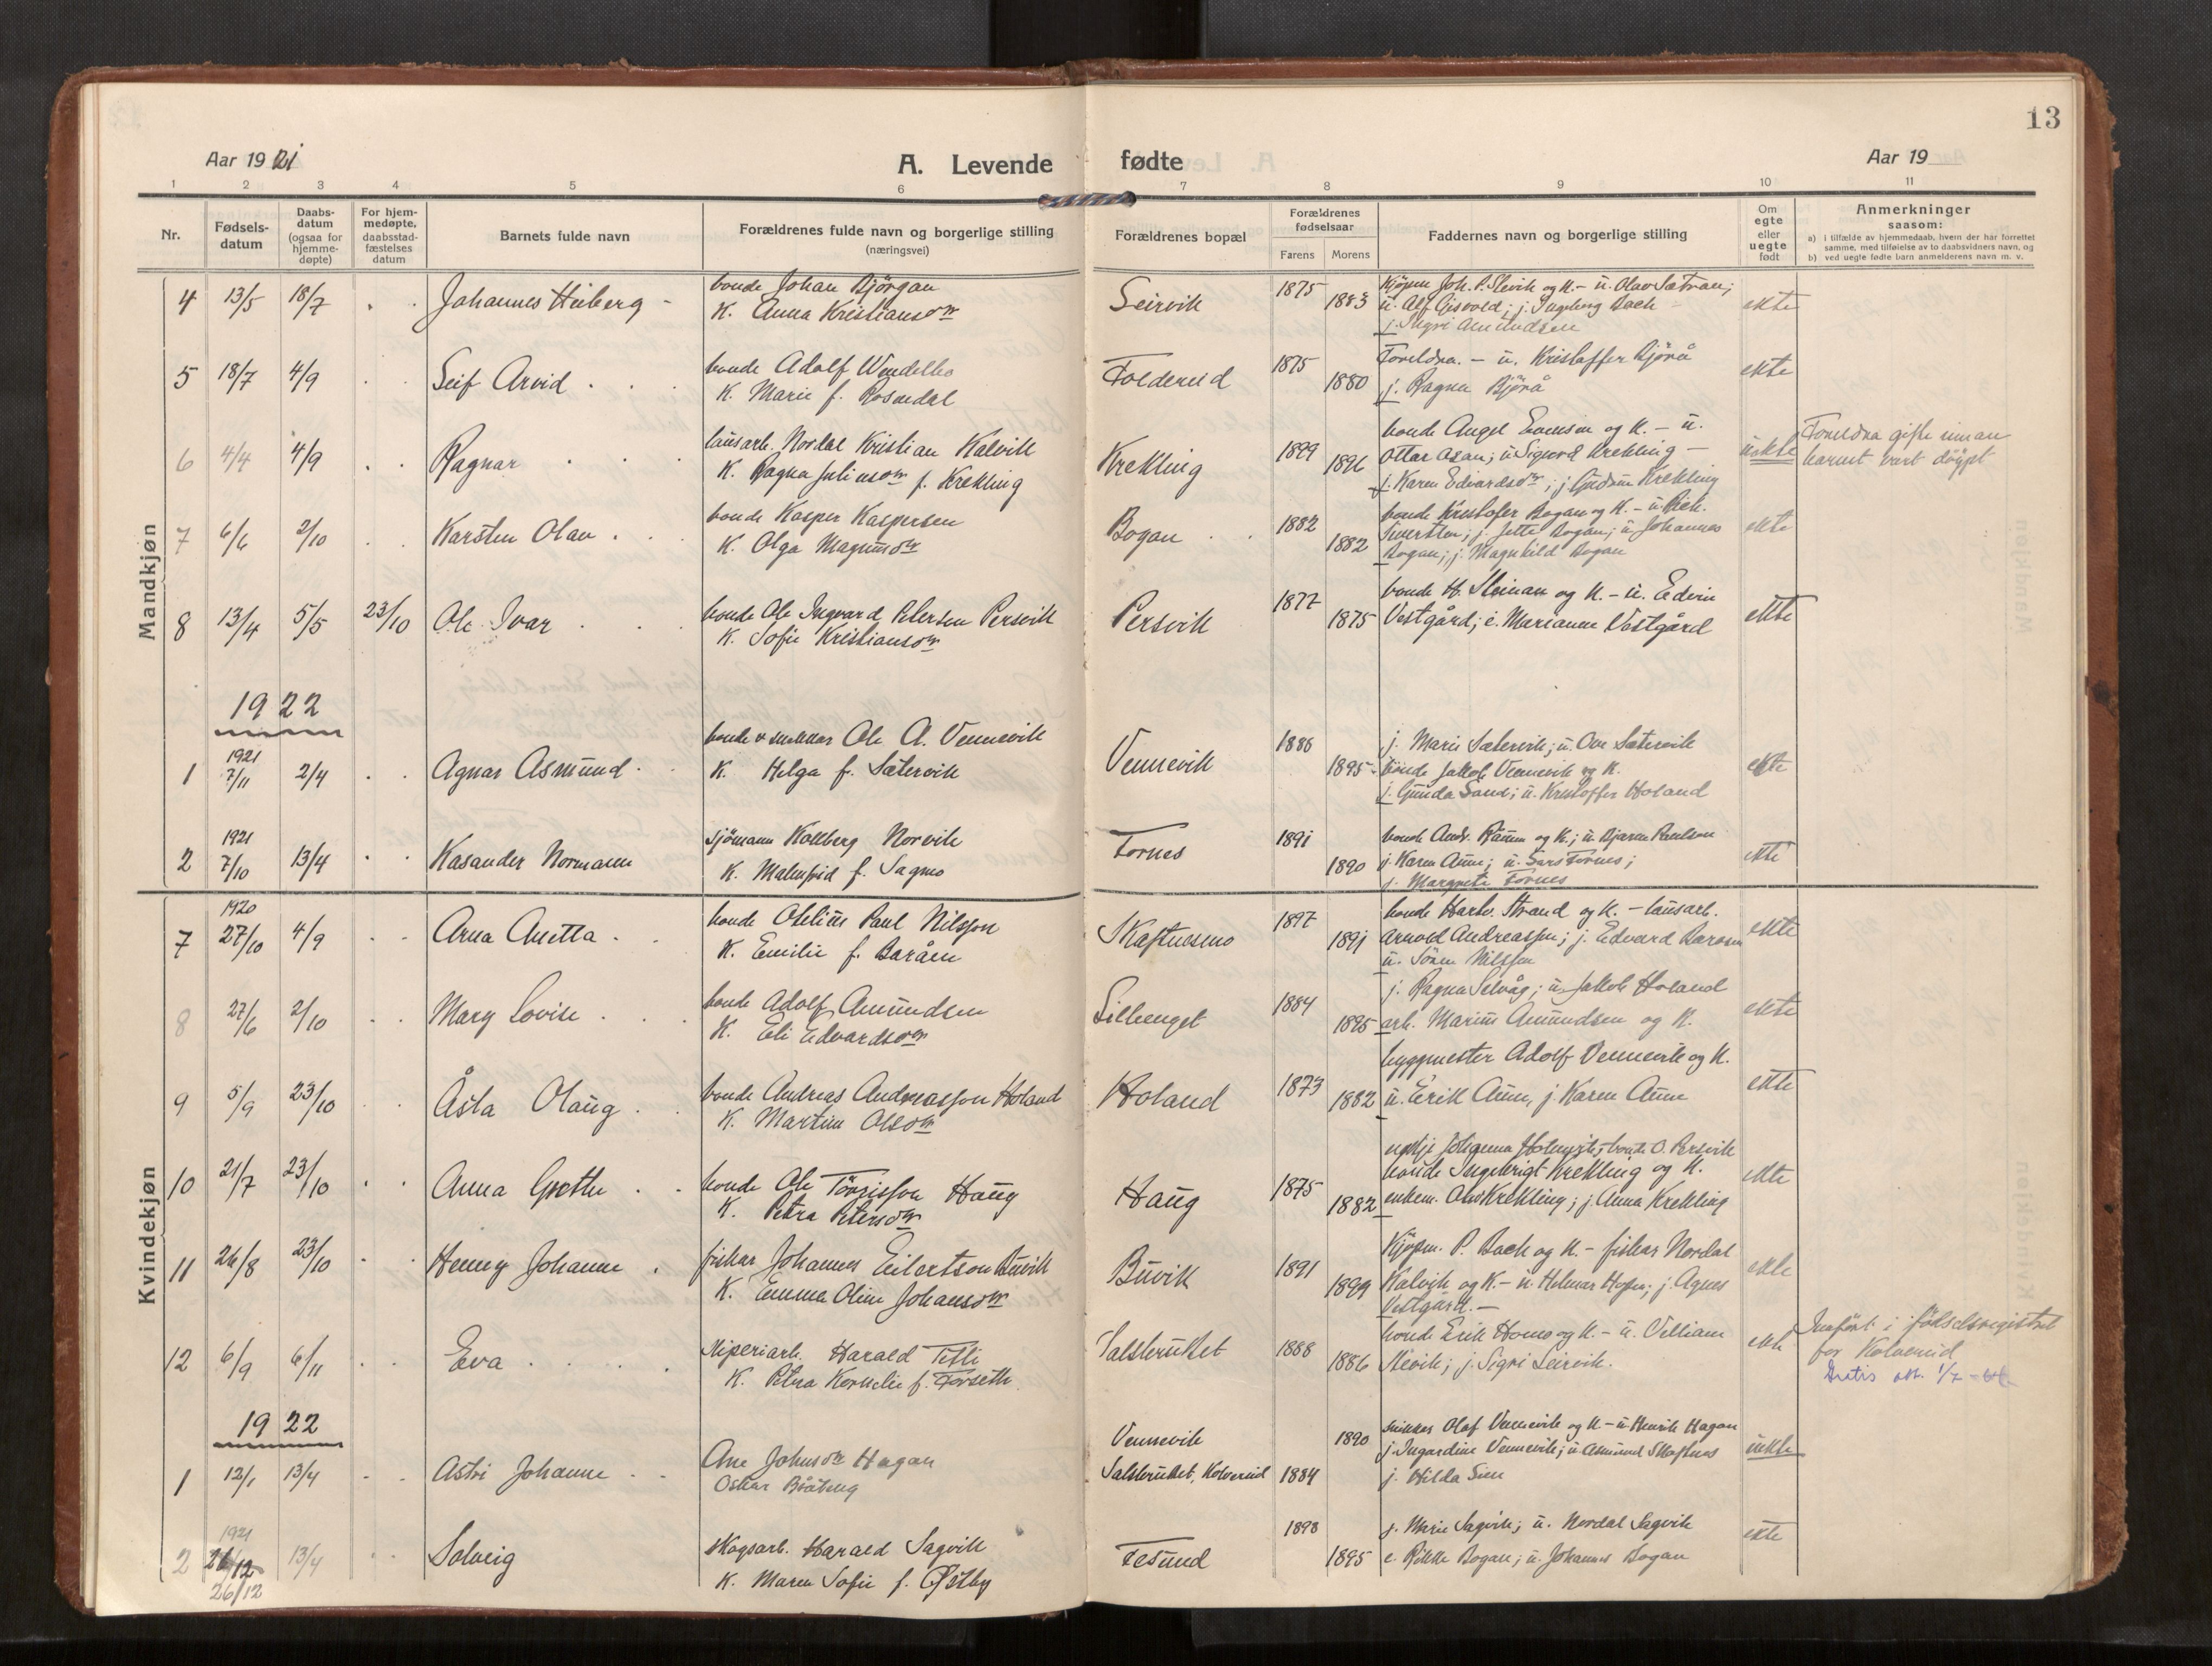 13
Aar 1921
A. Levende fødte
Aar 19
1 2 3 4 5 6 7 8 9 10 11
Nr.
Fødsels-
datum
Daabs-
datum
(ogsaa for
hjemme-
døpte)
For hjem-
medøpte,
daabsstad-
fæstelses
datum
Barnets fulde navn
Forældrenes fulde navn og borgerlige stilling
(næringsvei)
Forældrenes bopæl
Forældrenes
fødselsaar
Farens Morens
Faddernes navn og borgerlige stilling
Om
egte
eller
uegte
født
Anmerkninger
saasom:
a) i tilfælde av hjemmedaab, hvem der har forrettet
samme, med tilføielse av to daabsvidners navn, og
b) ved uegte fødte barn anmelderens navn m. v.
Mandkjøn
4 13/5 18/7 Johannes Heiberg
bonde Johan Bjørgan
K. Anna Kristiansdtr
Seirvik 1875 1883
Kjøpm. Joh. P. Slevik og K. - u. Olav Sætran;
u. Alf Gisvold; j. Ingeborg Bach
j. Sigri Amundsen
ekte
5 18/7 4/9 Leif Arvid
bonde Adolf Wendelbo
K. Marie f. Rosendal
Foldereid 1875 1880
Foreldra. - u. Kristoffer Bjørå
j. Ragna Bjørå
ekte
6 4/4 4/9 Ragnar
lausarb. Nordal Kristian Kalvik
K. Ragna Juliusdtr f. Krekling
Krekling 1899 1896
bonde Angel Evensen og K. - u.
Ottar Asan; u. Sigurd Krekling -
j. Karen Edvardsdtr; j. Gudrun Krekling
uekte
Foreldra gifte innan
barnet vart døypt
7 6/6 2/10 Karsten Olav
bonde Kasper Kaspersen
K. Olga Magnusdtr
Bogan 1882 1882
bonde Kristofer Bogan og K. - u. Rich.
Sivertsen; j. Jette Bogan; u. Johannes
Bogan; j. Magnhild Bogan
ekte
8 13/4 5/5 23/10 Ole Ivar
bonde Ole Ingvard Petersen Persvik
K. Sofie Kristiansdtr
Persvik 1877 1875
bonde H. Steinan og K. - u. Edvin
Vestgård; e. Marianne Vestgård
ekte
1922
1 1921 7/11 2/4 Agnar Asmund
bonde & snekkar Ole A. Vennevik
K. Helga f. Sætervik
Vennevik 1886 1895
j. Marie Sætervik; u. Ove Sætervik
bonde Jakob Vennevik og K.
j. Gunda Sand; u. Kristoffer Holand
ekte
2 1921 7/10 13/4 Kasander Normann
sjømann Kollberg Norvik
K. Malmfrid f. Sagmo
Fornes 1891 1890
bonde Andr. Ramm og K.; u. Bjarne Paulson
j. Karen Aune; u. Lars Fornes;
j. Margrete Fornes
ekte
Kvindekjøn
7 1920 27/10 4/9 Arna Anetta
bonde Othelius Paul Nilsson
K. Emilie f. Baråen
Skaftnesmo 1897 1891
bonde Hartv. Strand og K. - lausarb.
Arnold Andreassen; j. Edvard Baraaen
u. Sören Nilssen
ekte
8 27/6 2/10 Mary Lovise
bonde Adolf Amundsen
K. Eli Edvardsdtr
Lilleenget 1884 1895
j. Ragna Selvåg; u. Jakob Holand
arb. Marius Amundsen og K.
ekte
9 5/9 23/10 Åsta Olaug
bonde Andreas Andreasson Holand
K. Martine Olsdtr
Holand 1873 1882
byggmester Adolf Vennevik og K.
u. Erik Aune, j. Karen Aune
ekte
10 21/7 23/10 Anna Grethe
bonde Ole Törrisson Haug
K. Petra Petersdtr
Haug 1875 1882
bonde O. Persvik
bonde Ingebrigt Krekling og K.
enkem. Olav Krekling; j. Anna Krekling
ekte
11 26/8 23/10 Henny Johanne
fiskar Johannes Eilertson Buvik
K. Emma Oline Johansdtr
Buvik 1891 1899
Kjøpm. P. Bach og K. - fiskar Nordal
Kalvik og K. - u. Helmar Hofsen; j. Agnes
Vestgård. -
ekte
12 6/9 6/11 Eva
sliperiarb. Harald Tetli
K. Petra Kornelie f. Forseth
Salsbruket 1888 1886
bonde Erik Homo og K. - u. Villiam
Slevik; j. Sigri Seirvik.
ekte
Innført i fødselsregistret
for Kolvereid
1922
1 12/1 13/4 Astri Johanne
Ane Johnsdtr Hagan
Oskar Bråteng
Vennevik 1890
Salsbruket, Kolvereid 1884
snikkar Olaf Vennevik og K. - u. Henrik Hagan
j. Ingardine Vennevik; u. Asmund Skaftnes
j. Hilda Sien
uekte
2 1921 26/12 13/4 Solveig
26/12
skogsarb. Harald Sagvik
K. Maren Sofie f. Østby
Tesund 1898 1895
j. Marie Sagvik; u. Nordal Sagvik
e. Rikke Bogan; u. Johannes Bogan
ekte